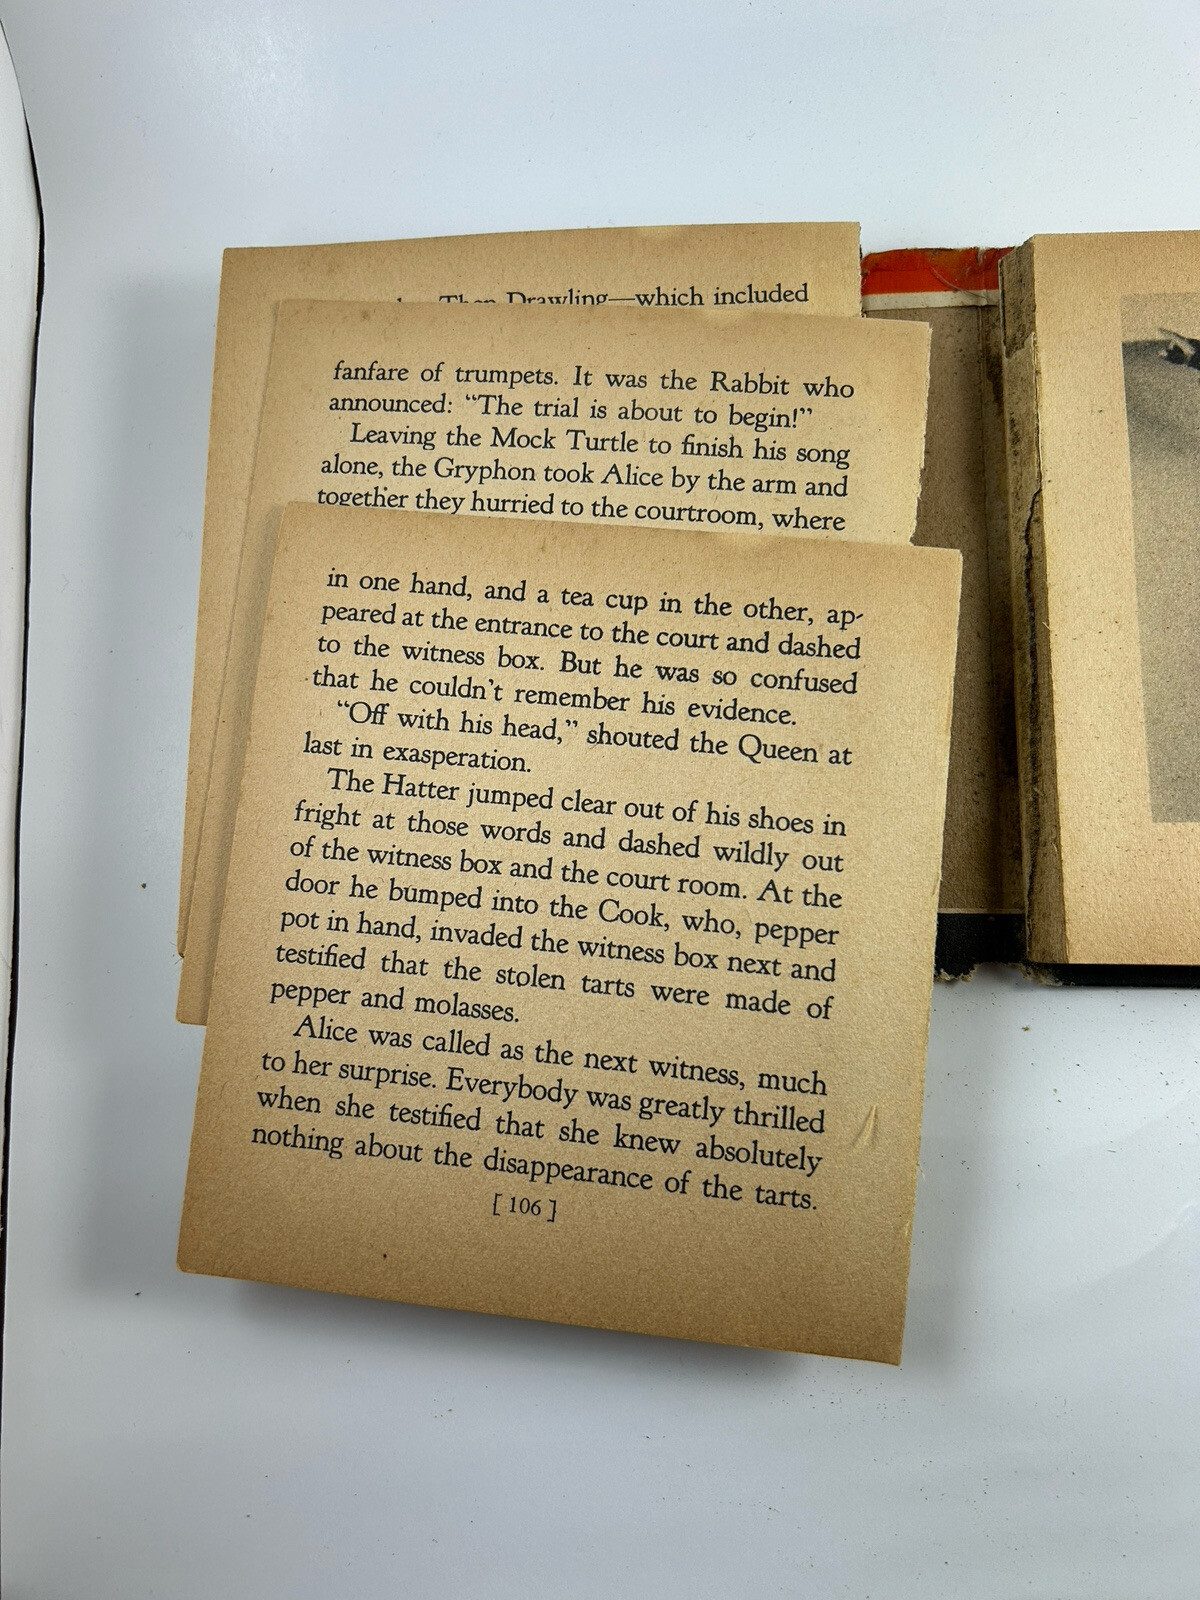 Then Drawling—which included
fanfare of trumpets. It was the Rabbit who
announced: “The trial is about to begin!”
Leaving the Mock Turtle to finish his song
alone, the Gryphon took Alice by the arm and
together they hurried to the courtroom, where
in one hand, and a tea cup in the other, ap-
peared at the entrance to the court and dashed
to the witness box. But he was so confused
that he couldn’t remember his evidence.
“Off with his head,” shouted the Queen at
last in exasperation.
The Hatter jumped clear out of his shoes in
fright at those words and dashed wildly out
of the witness box and the court room. At the
door he bumped into the Cook, who, pepper
pot in hand, invaded the witness box next and
testified that the stolen tarts were made of
pepper and molasses.
Alice was called as the next witness, much
to her surprise. Everybody was greatly thrilled
when she testified that she knew absolutely
nothing about the disappearance of the tarts.
[ 106 ]